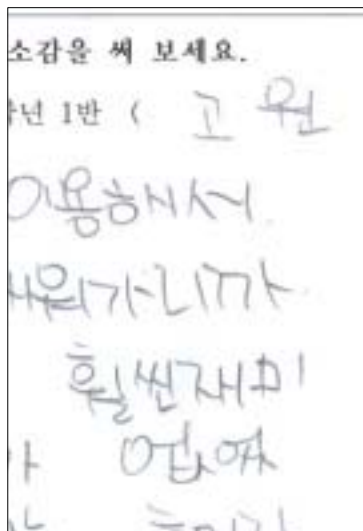 소감을 써 보세요.
년 1반 ( 고 원
이용해서
워가니까
훨씬재미
업